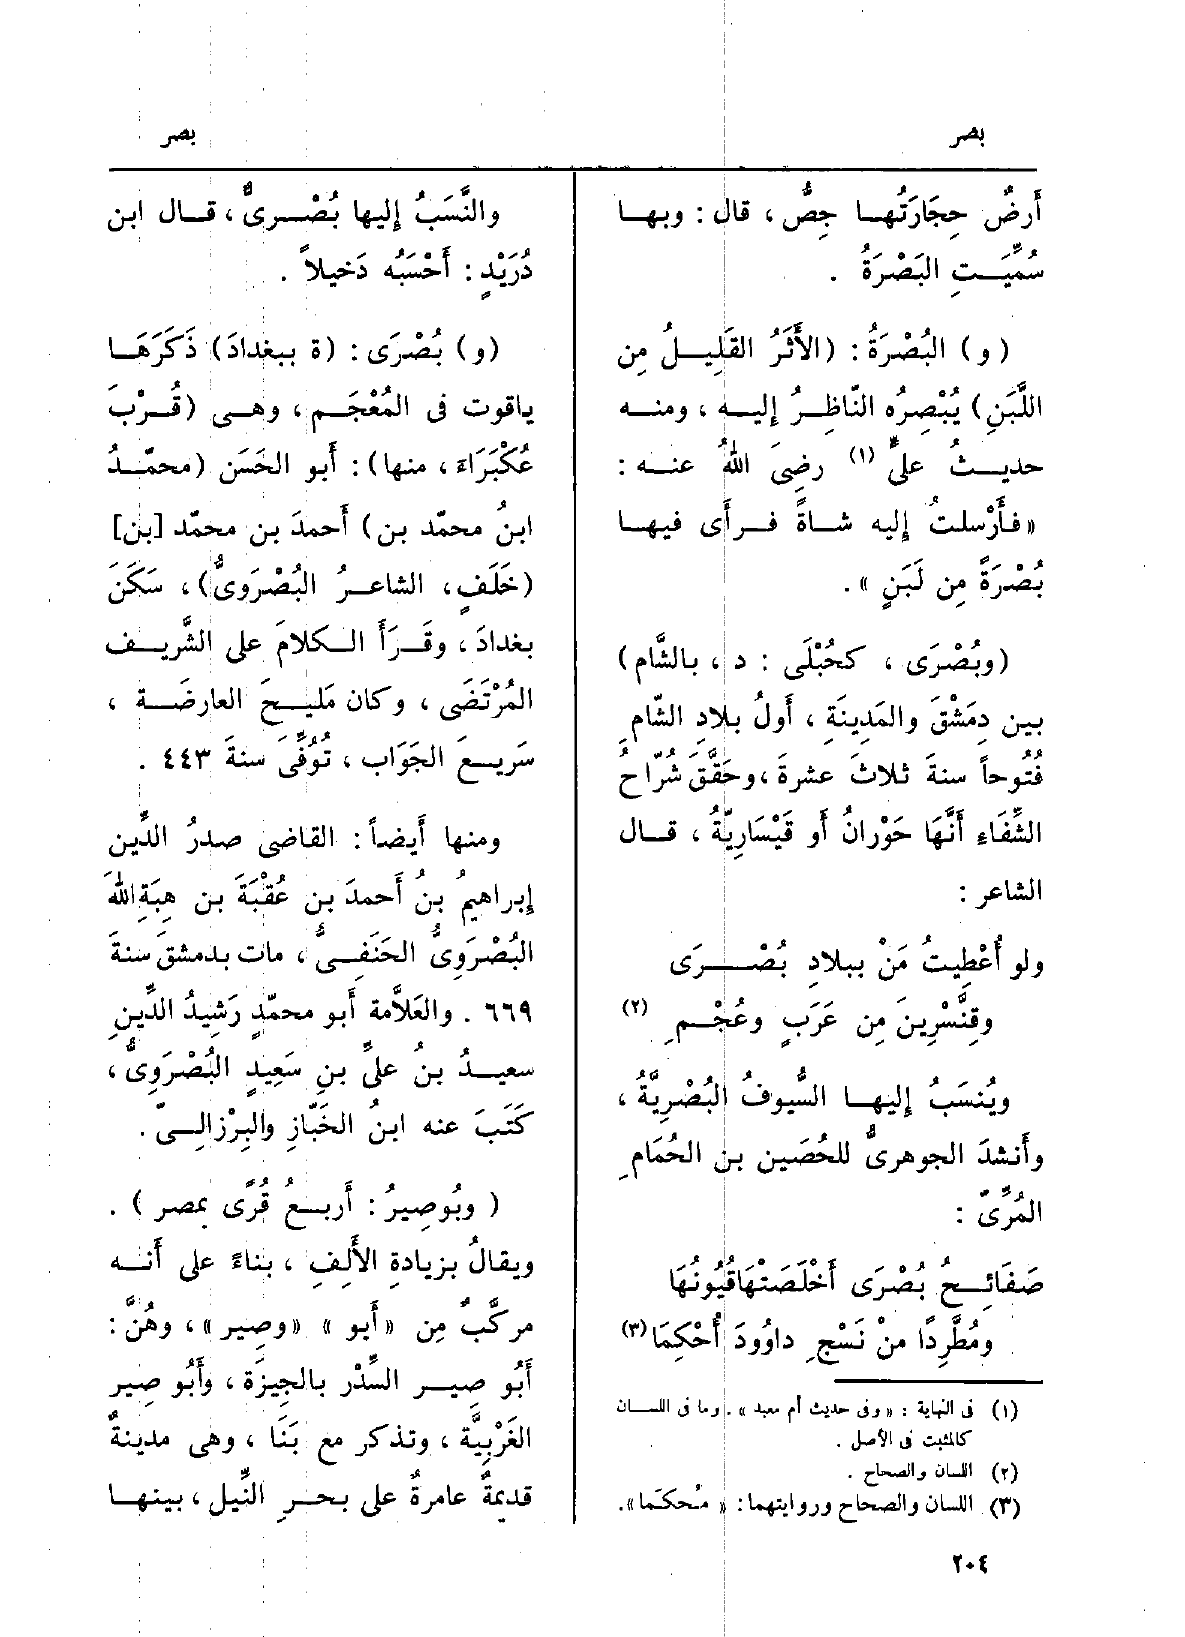 بصر
بصر
أَرضٌ حِجَارَتُهـا جِصٌّ ، قال : وبهـا
سُمِّيَـتِ البَصْرَةُ .
( و ) البُصْرَةُ : (الأَثَرُ القَلِيـلُ مِن
اللَّبَنِ) يُبْصِرُه النّاظِـرُ إليـه ، ومنـه
حديـثُ علىٍّ (١) رضِىَ اللهُ عنـه :
«فأَرْسلتُ إليه شـاةً فـرأَى فيهـا
بُصْرَةً مِن لَبَنٍ » .
(وبُصْرَى ، كحُبْلَى : د ، بالشَّام)
بين دِمَشْقَ والمَدِينةِ ، أَولُ بلادِ الشّامِ
فُتُوحاً سنةَ ثلاثَ عشرةَ ،وحَقَّقَ شُرّاحُ
الشِّفَاءِ أَنَّهَا حَوْرانُ أو قَيْسَارِيّةُ ، قـال
الشاعر :
ولو أُعْطِيتُ مَنْ ببلادِ بُصْـرَى
وقِنَّسْرِينَ مِن عَرَبٍ وعُجْـمِ (٢)
ويُنسَبُ إليهـا السُّيوفُ البُصْرِيَّةُ ،
وأَنشدَ الجوهرىُّ للحُصَين بن الحُمَامِ
المُرِّىّ :
صَفَائِـحُ بُصْرَى أَخْلَصَتْهَاقُيُونُهَا
ومُطَّرِدًا منْ نَسْجِ داوُودَ أُحْكِمَا(٣)
(١) فى النهاية : «وفى حديث أم معبد» . وما فى اللسـان
كالمثبت فى الأصل .
(٢) اللسان والصحاح .
(٣) اللسان والصحاح وروايتهما : « مُحكمَا».
والنَّسَبُ إليها بُصْـرىٌّ ، قـال ابن
دُرَيْدٍ : أَحْسَبُه دَخيلاً .
(و) بُصْرَى : (ة ببغدادَ) ذَكَرَهَـا
ياقوت فى المُعْجَـم ، وهـى (قُـرْبَ
عُكْبَرَاءَ ، منها) : أبو الحَسَن (محمّـدُ
ابنُ محمّد بن) أحمدَ بن محمّد [بن]
(خَلَفٍ، الشاعـرُ البُصْرَوىُّ) ، سَكَنَ
بغدادَ ، وقَـرَأَ الـكلامَ على الشَّريـف
المُرْتَضَى ، وكان مَليـحَ العارضَـة ،
سَريـعَ الجَوَاب ، تُوُفِّىَ سنةَ ٤٤٣ .
ومنها أيضاً : القاضى صدرُ الدِّين
إبراهيمُ بنُ أحمدَ بن عُقْبَةَ بن هِبَةِاللهَ
البُصْرَوىُّ الحَنَفِـىُّ ، مات بدمشقَ سنةَ
٦٦٩ . والعَلاَّمة أبو محمّدٍ رَشِيدُ الدِّينِ
سعيـدُ بنُ علىِّ بنِ سَعِيدٍ البُصْرَوِىُّ ،
كَتَبَ عنه ابنُ الخَبّازِ والبِرْزالِـىّ .
( وبُوصِيرُ : أَربـعُ قُرًى بمصر ) .
ويقالُ بزيادةِ الأَلِفِ ، بناءً على أَنـه
مركَّبٌ مِن «أبو » «وصِير» ، وهُنَّ :
أَبُو صِيـر السِّدْر بالجِيزَة ، وأَبُو صِير
الغَرْبِيَّة ، وتذكر مع بَنَا ، وهى مدينةٌ
قديمةٌ عامرةٌ على بحرِ النِّيل ، بينهـا
٢٠٤